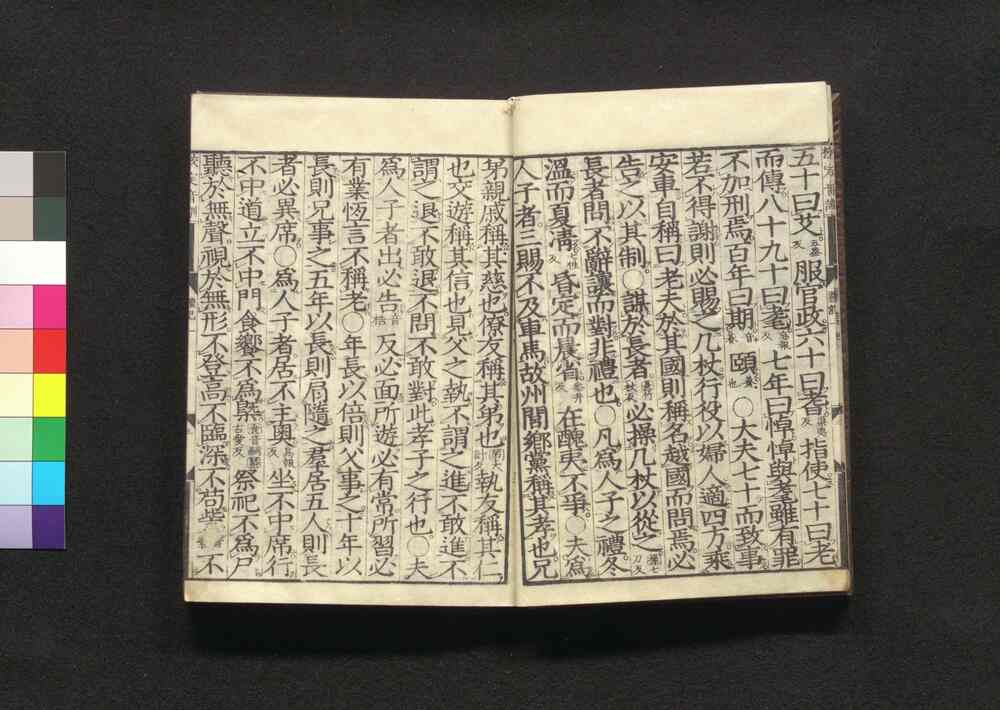 五十曰艾服官政六十曰耆指使七十曰老
而傳八十九十曰耄七年曰悼悼與耄雖有罪
不加刑焉百年曰期頤〇大夫七十而致事
若不得謝則必賜之几杖行役以婦人適四方乘
安車自稱曰老夫於其國則稱名越國而問焉必
告之以其制〇謀於長者必操几杖以從之
長者問不辭讓而對非禮也〇凡爲人子之禮冬
溫而夏凊昏定而晨省在醜夷不爭〇夫爲
人子者三賜不及車馬故州閭鄉黨稱其孝也兄
弟親戚稱其慈也僚友稱其弟也執友稱其仁
也交遊稱其信也見父之執不謂之進不敢進不
謂之退不敢退不問不敢對此孝子之行也〇夫
爲人子者出必告反必面所遊必有常所習必
有業恆言不稱老〇年長以倍則父事之十年以
長則兄事之五年以長則肩隨之群居五人則長
者必異席〇爲人子者居不主奧坐不中席行
不中道立不中門食饗不爲槩祭祀不爲尸
聽於無聲視於無形不登高不臨深不苟訾不